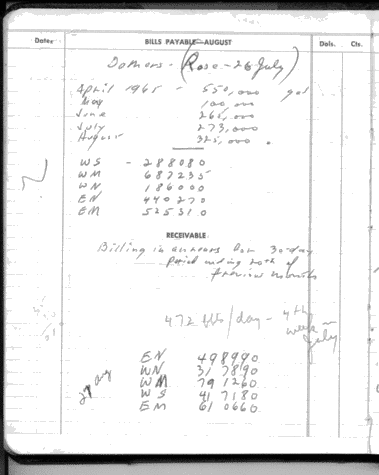 Date BILLS PAYABLE—AUGUST Dols. Cts.
(Rose - 26 July)
April 1965 - 550,000 gal
May 100,000
June 265,000
July 273,000
August 325,000
WS - 288080
WM 687235
WN 186000
EN 440270
EM 525310
RECEIVABLE
Billing in arrears for 30-day
period ending 20th of
previous months
472 /day - 4th
week in
July
EN 498990
WN 317890
WM 791260
WS 417180
EM 610660
27 Aug